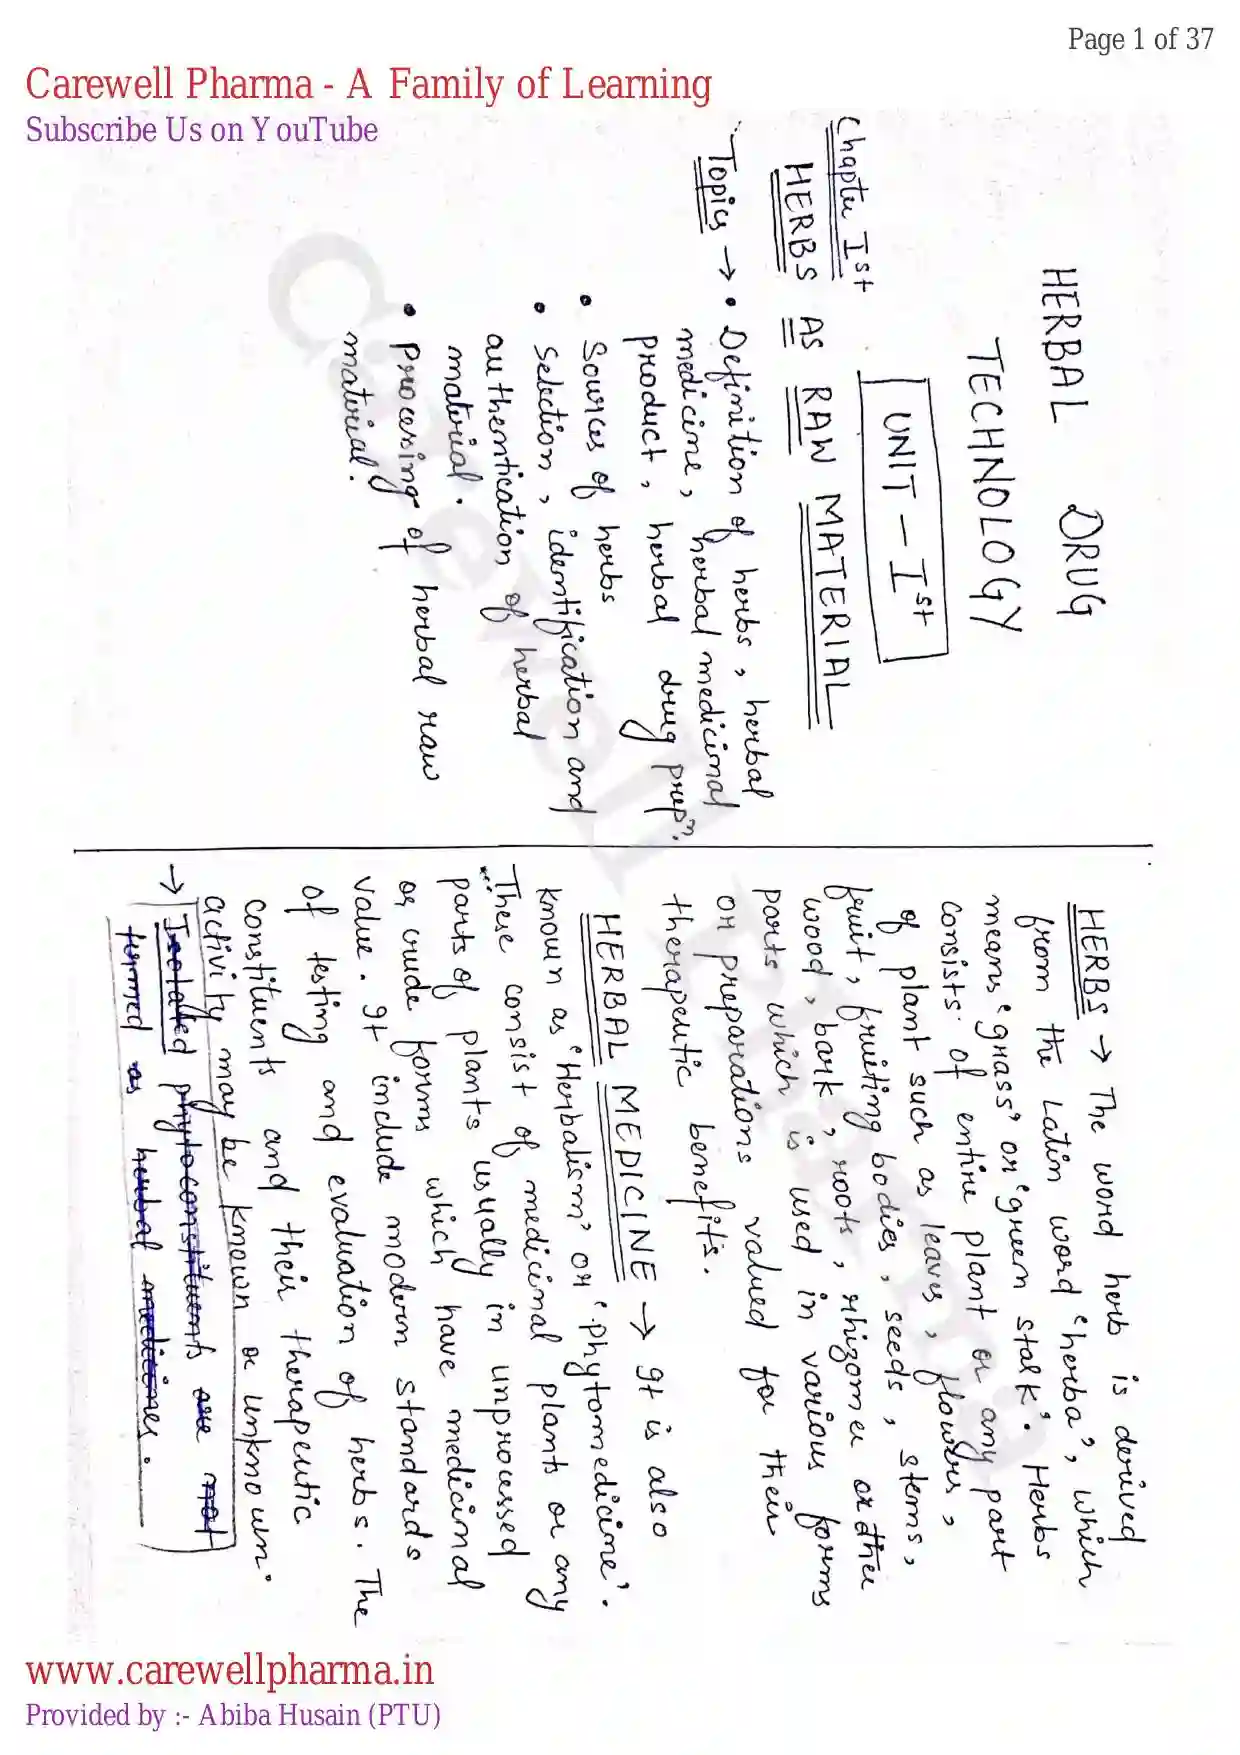 Page 1 of 37
Carewell Pharma - A Family of Learning
Subscribe Us on YouTube
HERBAL DRUG
TECHNOLOGY
UNIT - Ist
Chapter Ist
HERBS AS RAW MATERIAL
Topics → • Definition of herbs, herbal
medicine, herbal medicinal
product, herbal drug prepn.
• Sources of herbs
• Selection, identification and
authentication of herbal
material.
• Processing of herbal raw
material.
HERBS → The word herb is derived
from the Latin word 'herba', which
means 'grass' or 'green stalk'. Herbs
consists of entire plant or any part
of plant such as leaves, flowers,
fruit, fruiting bodies, seeds, stems,
wood, bark, roots, rhizomes or other
parts which is used in various forms
or preparations valued for their
therapeutic benefits.
HERBAL MEDICINE → It is also
known as 'Herbalism' or 'phytomedicine'.
These consist of medicinal plants or any
parts of plants usually in unprocessed
or crude forms which have medicinal
value. It include modern standards
of testing and evaluation of herbs. The
constituents and their therapeutic
activity may be known or unknown.
→ Isolated phytoconstituents are not
termed as herbal medicines.
Carewell Pharma
www.carewellpharma.in
Provided by :- Abiba Husain (PTU)